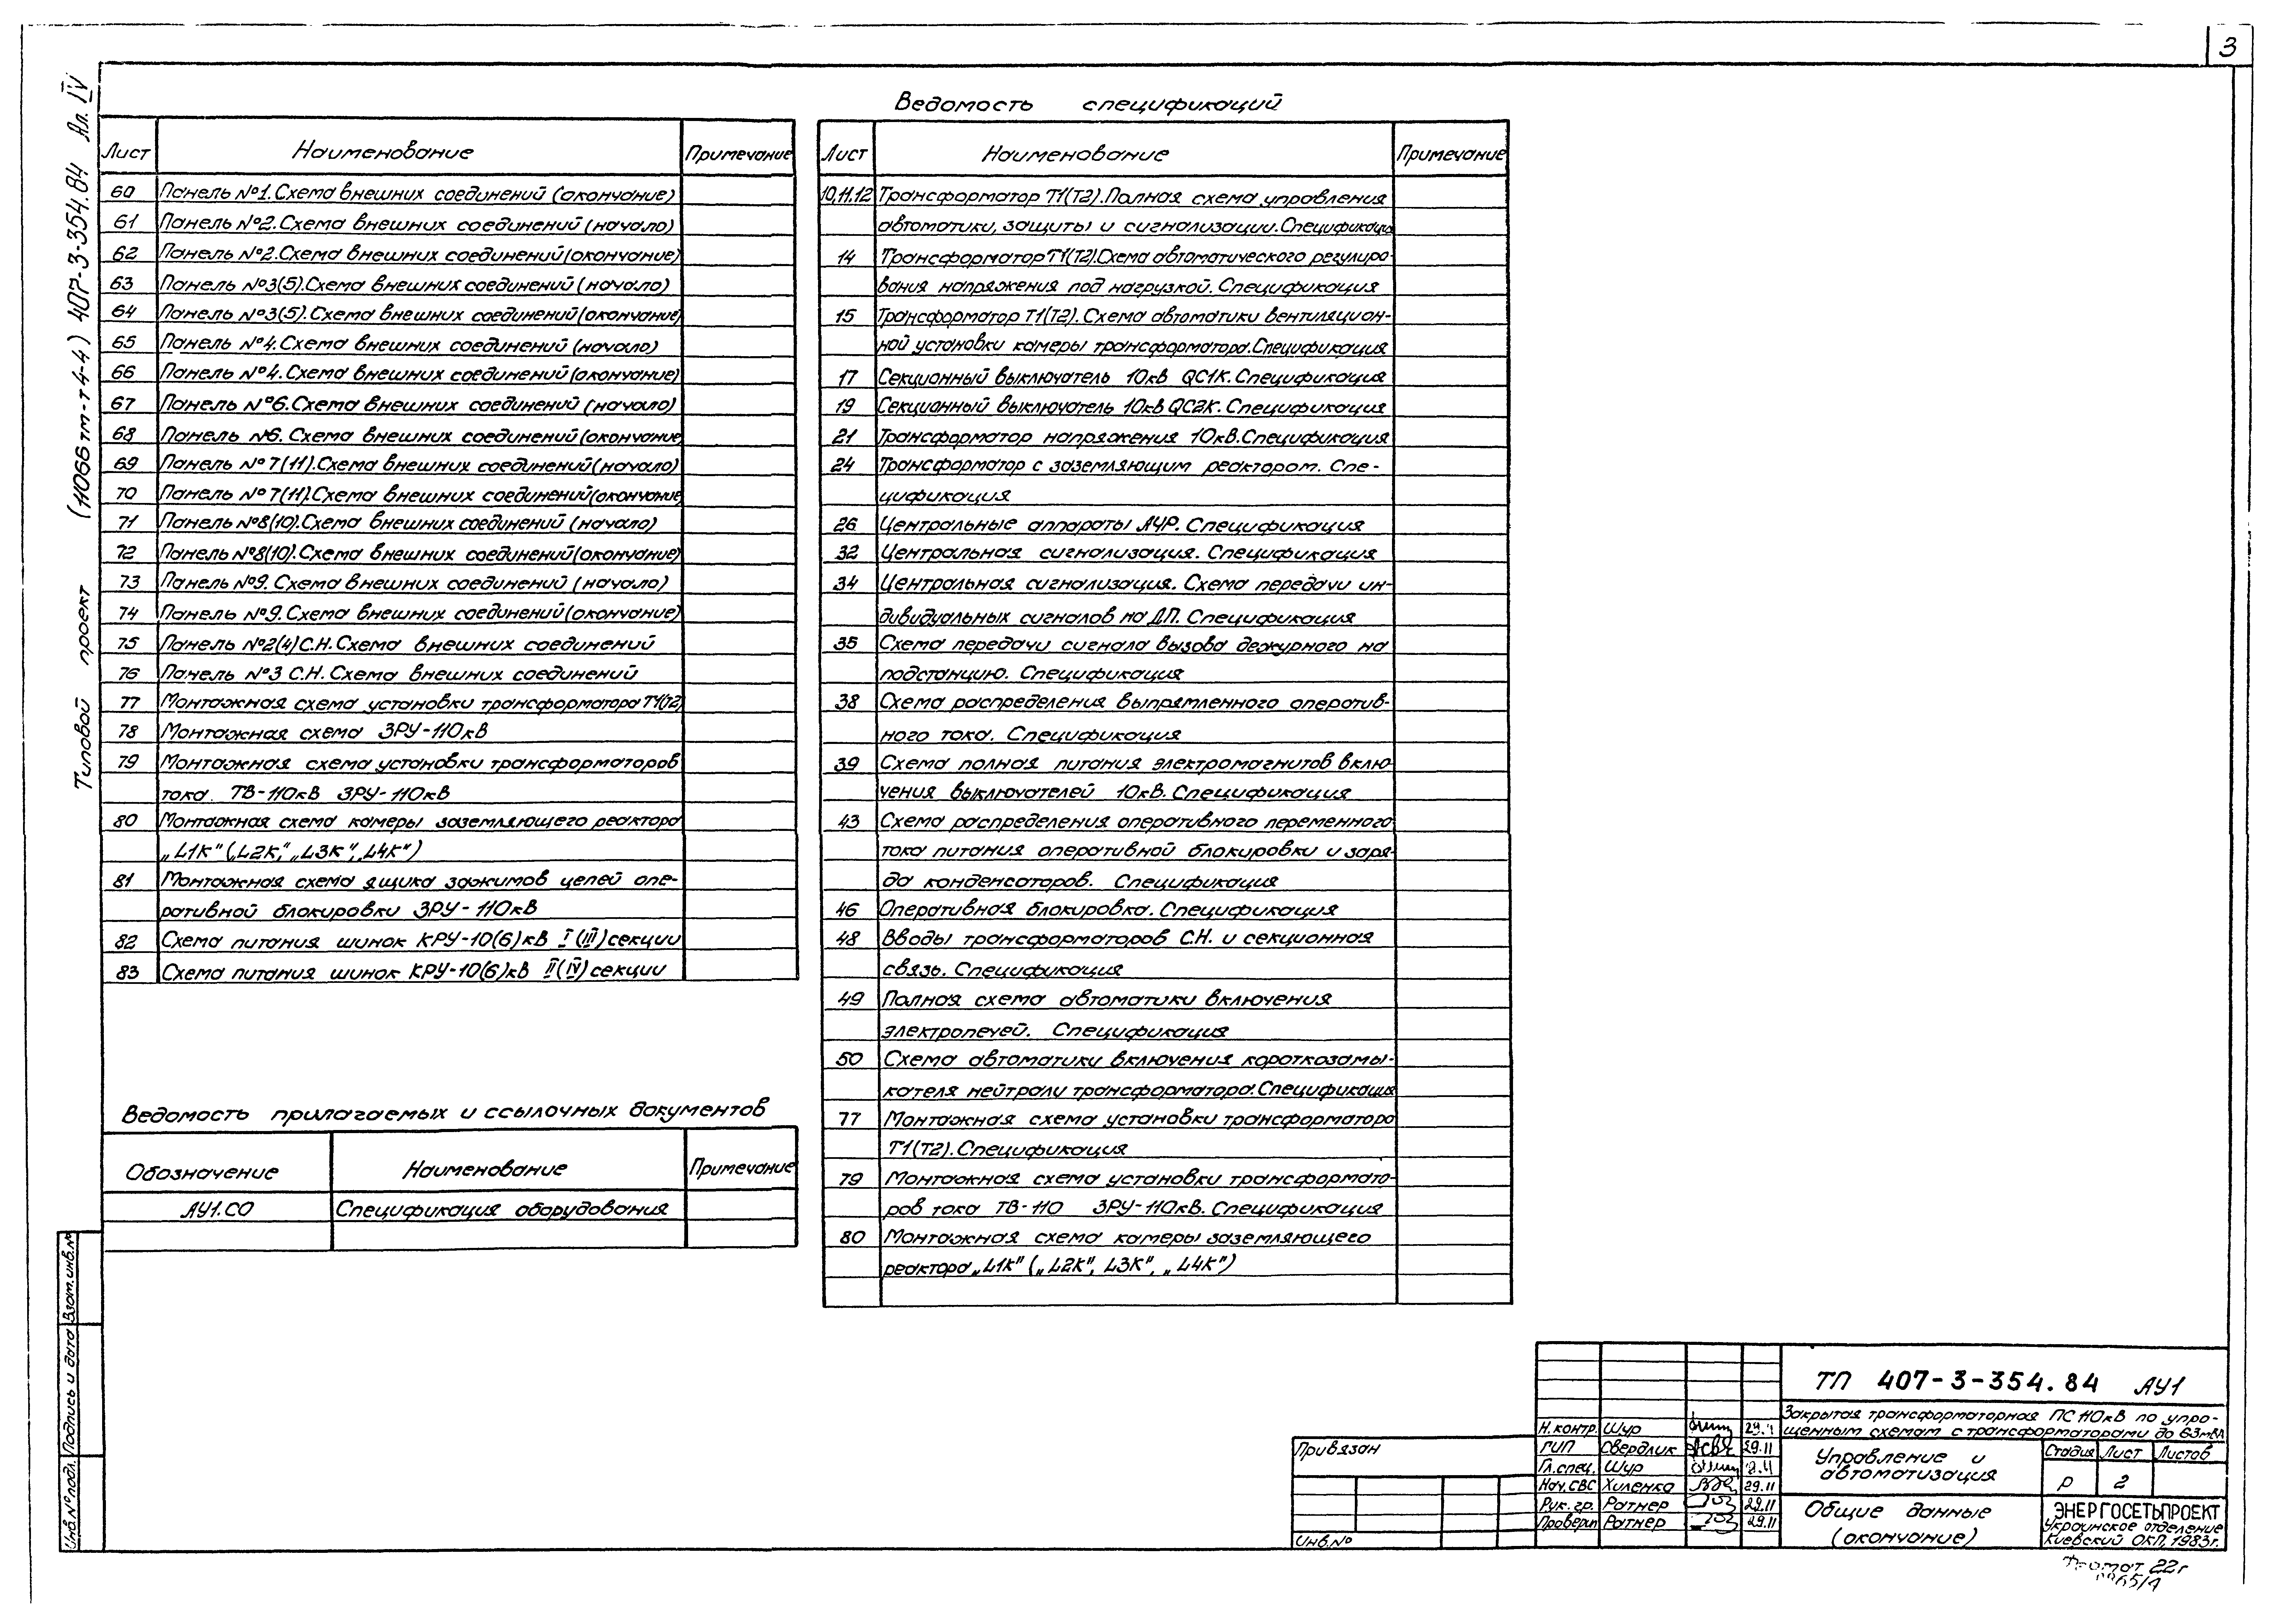 3
Типовой проект (11066тм-т4-4) 407-3-354.84 Ал. IV
Лист Наименование Примечание
60 Панель №1. Схема внешних соединений (окончание)
61 Панель №2. Схема внешних соединений (начало)
62 Панель №2. Схема внешних соединений (окончание)
63 Панель №3(5). Схема внешних соединений (начало)
64 Панель №3(5). Схема внешних соединений (окончание)
65 Панель №4. Схема внешних соединений (начало)
66 Панель №4. Схема внешних соединений (окончание)
67 Панель №6. Схема внешних соединений (начало)
68 Панель №6. Схема внешних соединений (окончание
69 Панель №7(11). Схема внешних соединений (начало)
70 Панель №7(11). Схема внешних соединений (окончание
71 Панель №8(10). Схема внешних соединений (начало)
72 Панель №8(10). Схема внешних соединений (окончание)
73 Панель №9. Схема внешних соединений (начало)
74 Панель №9. Схема внешних соединений (окончание)
75 Панель №2(4) С.Н. Схема внешних соединений
76 Панель №3 С.Н. Схема внешних соединений
77 Монтажная схема установки трансформатора Т1(Т2)
78 Монтажная схема ЗРУ-110кВ
79 Монтажная схема установки трансформаторов
тока ТВ-110кВ ЗРУ-110кВ
80 Монтажная схема камеры заземляющего реактора
„L1К" („L2К", „L3К", „L4К")
81 Монтажная схема ящика зажимов цепей опе-
ративной блокировки ЗРУ-110кВ
82 Схема питания шинок КРУ-10(6)кВ I (III) секции
83 Схема питания шинок КРУ-10(6)кВ II (IV) секции
Ведомость прилагаемых и ссылочных документов
Обозначение Наименование Примечание
АУ1.СО Спецификация оборудования
Ведомость спецификаций
Лист Наименование Примечание
10,11,12 Трансформатор Т1(Т2). Полная схема управления
автоматики, защиты и сигнализации. Спецификация
14 Трансформатор Т1(Т2). Схема автоматического регулиро-
вания напряжения под нагрузкой. Спецификация
15 Трансформатор Т1(Т2). Схема автоматики вентиляцион-
ной установки камеры трансформатора. Спецификация
17 Секционный выключатель 10кВ QC1К. Спецификация
19 Секционный выключатель 10кВ QC2К. Спецификация
21 Трансформатор напряжения 10кВ. Спецификация
24 Трансформатор с заземляющим реактором. Спе-
цификация
26 Центральные аппараты АЧР. Спецификация
32 Центральная сигнализация. Спецификация
34 Центральная сигнализация. Схема передачи ин-
дивидуальных сигналов на ДП. Спецификация
35 Схема передачи сигнала вызова дежурного на
подстанцию. Спецификация
38 Схема распределения выпрямленного оператив-
ного тока. Спецификация
39 Схема полная питания электромагнитов вклю-
чения выключателей 10кВ. Спецификация
43 Схема распределения оперативного переменного
тока питания оперативной блокировки и заря-
да конденсаторов. Спецификация
46 Оперативная блокировка. Спецификация
48 Вводы трансформаторов С.Н. и секционная
связь. Спецификация
49 Полная схема автоматики включения
электропечей. Спецификация
50 Схема автоматики включения короткозамы-
кателя нейтрали трансформатора. Спецификация
77 Монтажная схема установки трансформатора
Т1(Т2). Спецификация
79 Монтажная схема установки трансформато-
ров тока ТВ-110 ЗРУ-110кВ. Спецификация
80 Монтажная схема камеры заземляющего
реактора „L1К" („L2К", L3К", „L4К")
Инв.№ подл. Подпись и дата Взам.инв.№
Привязан
Инв.№
Н.контр. Шур 29.11
ГИП Свердлик 29.11
Гл.спец. Шур
Нач.СВС Хиленко 29.11
Рук.гр. Ратнер 29.11
Проверил Ратнер 29.11
ТП 407-3-354.84 АУ1
Закрытая трансформаторная ПС 110кВ по упро-
щенным схемам с трансформаторами до 63мВА
Управление и
автоматизация
Стадия Лист Листов
Р 2
Общие данные
(окончание)
ЭНЕРГОСЕТЬПРОЕКТ
Украинское отделение
Киевский ОКП, 1983г.
Формат 22г